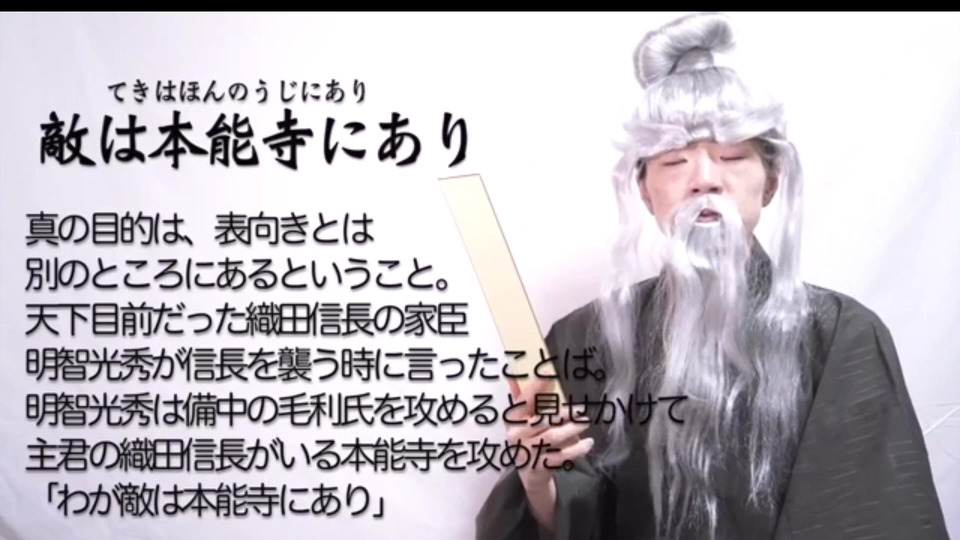 てきはほんのうじにあり
敵は本能寺にあり
真の目的は、表向きとは
別のところにあるということ。
天下目前だった織田信長の家臣
明智光秀が信長を襲う時に言ったことば。
明智光秀は備中の毛利氏を攻めると見せかけて
主君の織田信長がいる本能寺を攻めた。
「わが敵は本能寺にあり」